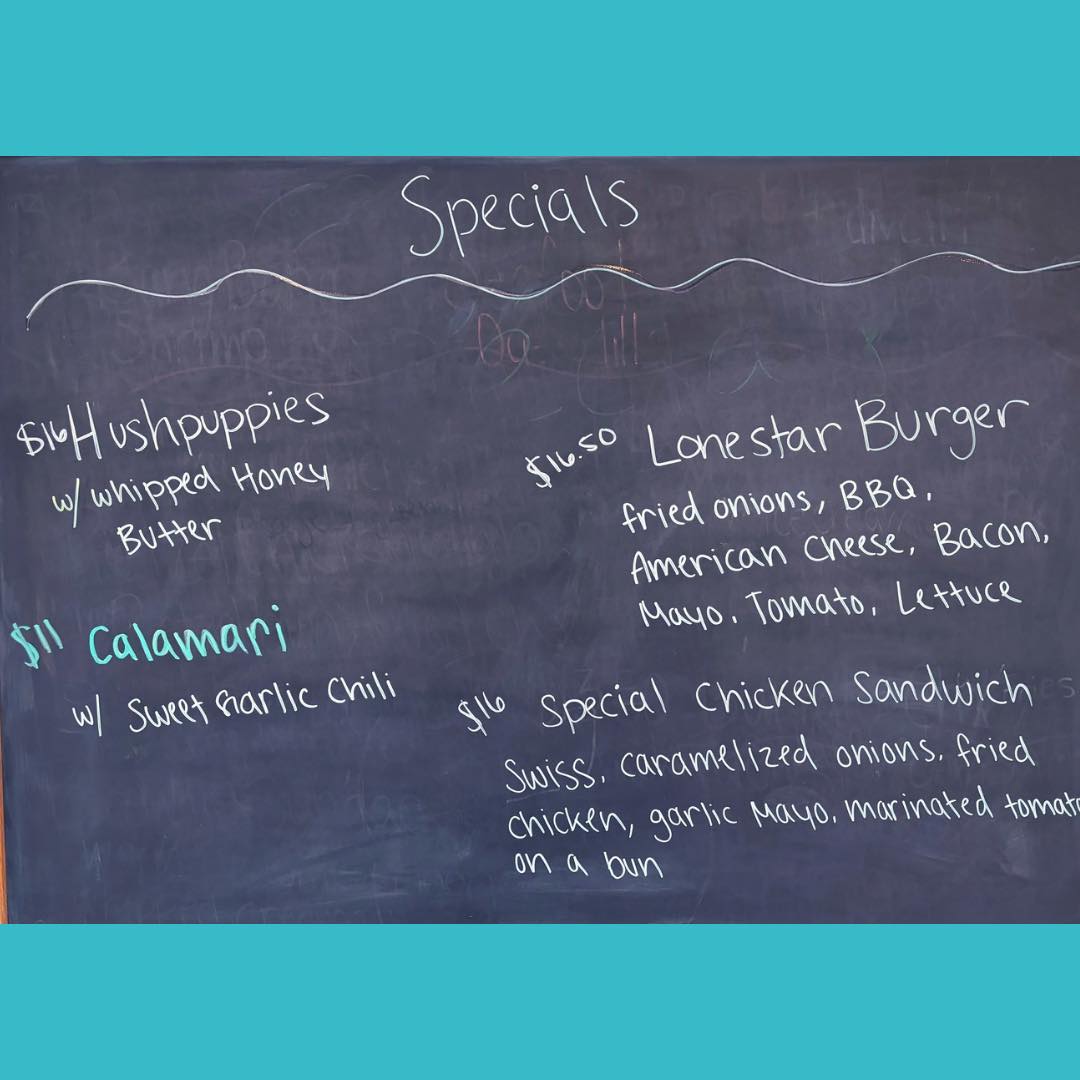 Specials
$16 Hushpuppies
w/ whipped Honey
Butter
$11 Calamari
w/ Sweet Garlic Chili
$16.50 Lonestar Burger
fried onions, BBQ,
American Cheese, Bacon,
Mayo, Tomato, Lettuce
$16 Special Chicken Sandwich
Swiss, caramelized onions, fried
chicken, garlic Mayo, marinated tomato
on a bun